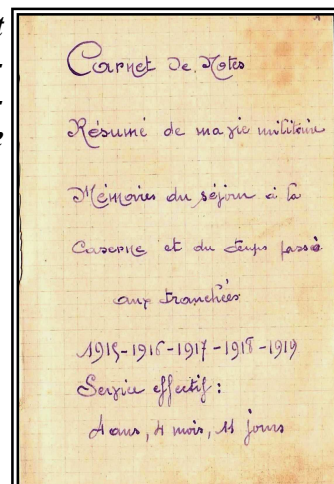 t
-
-
e
Carnet de Notes
Résumé de ma vie militaire
Mémoires du séjour à la
Caserne et du temps passé
aux tranchées
1915-1916-1917-1918-1919
Service effectif :
4 ans, 4 mois, 11 jours